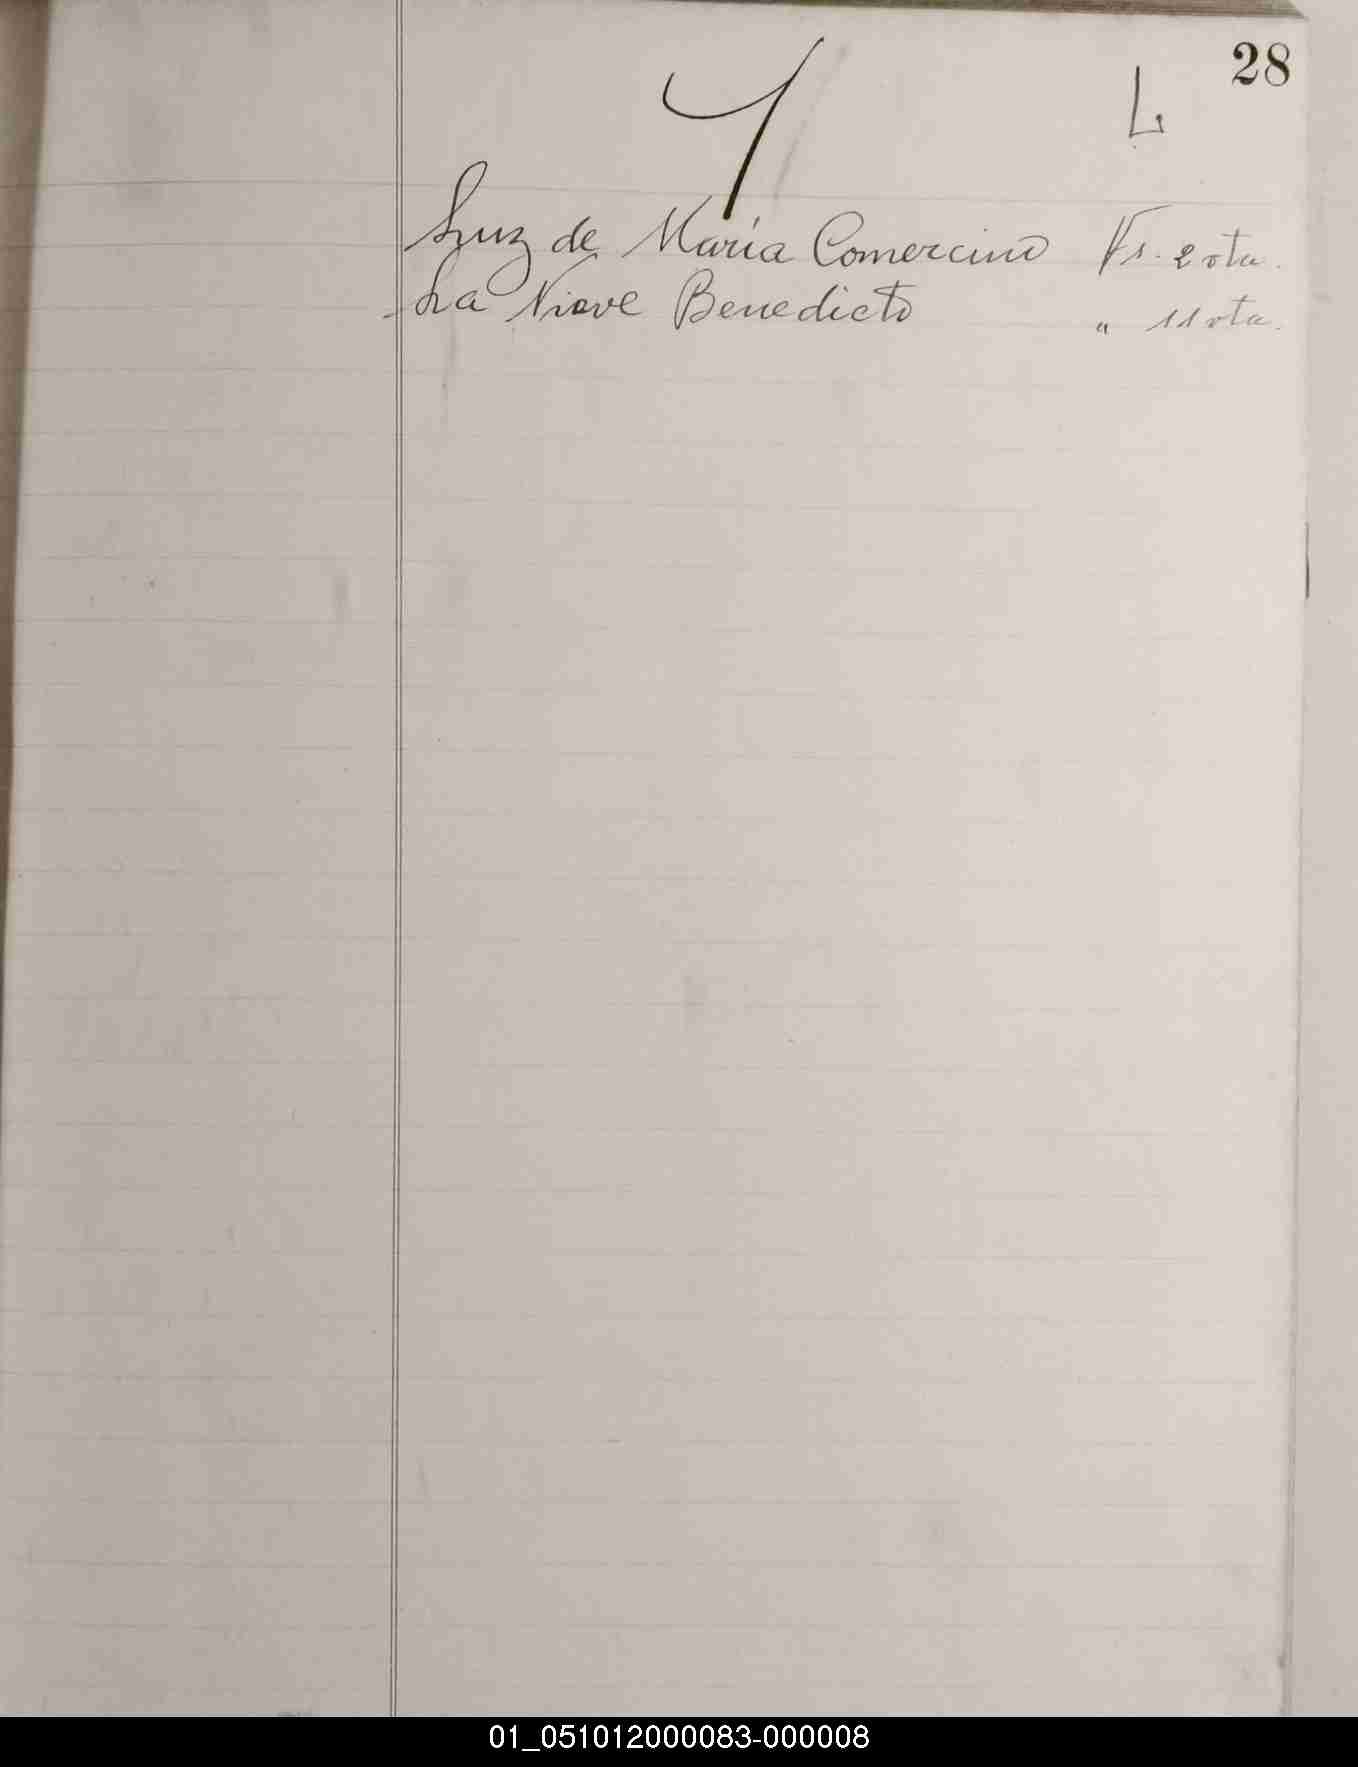 28
L
Luz de María Comercino Fs. 2 vta.
La Nieve Benedicto " 11 vta.
01_051012000083-000008